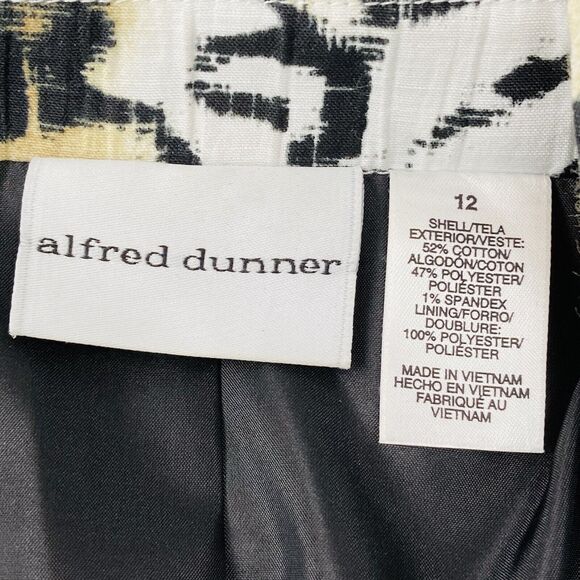 alfred dunner
12
SHELL/TELA
EXTERIOR/VESTE:
52% COTTON/
ALGODÓN/COTON
47% POLYESTER/
POLIÉSTER
1% SPANDEX
LINING/FORRO/
DOUBLURE:
100% POLYESTER/
POLIÉSTER
MADE IN VIETNAM
HECHO EN VIETNAM
FABRIQUÉ AU
VIETNAM